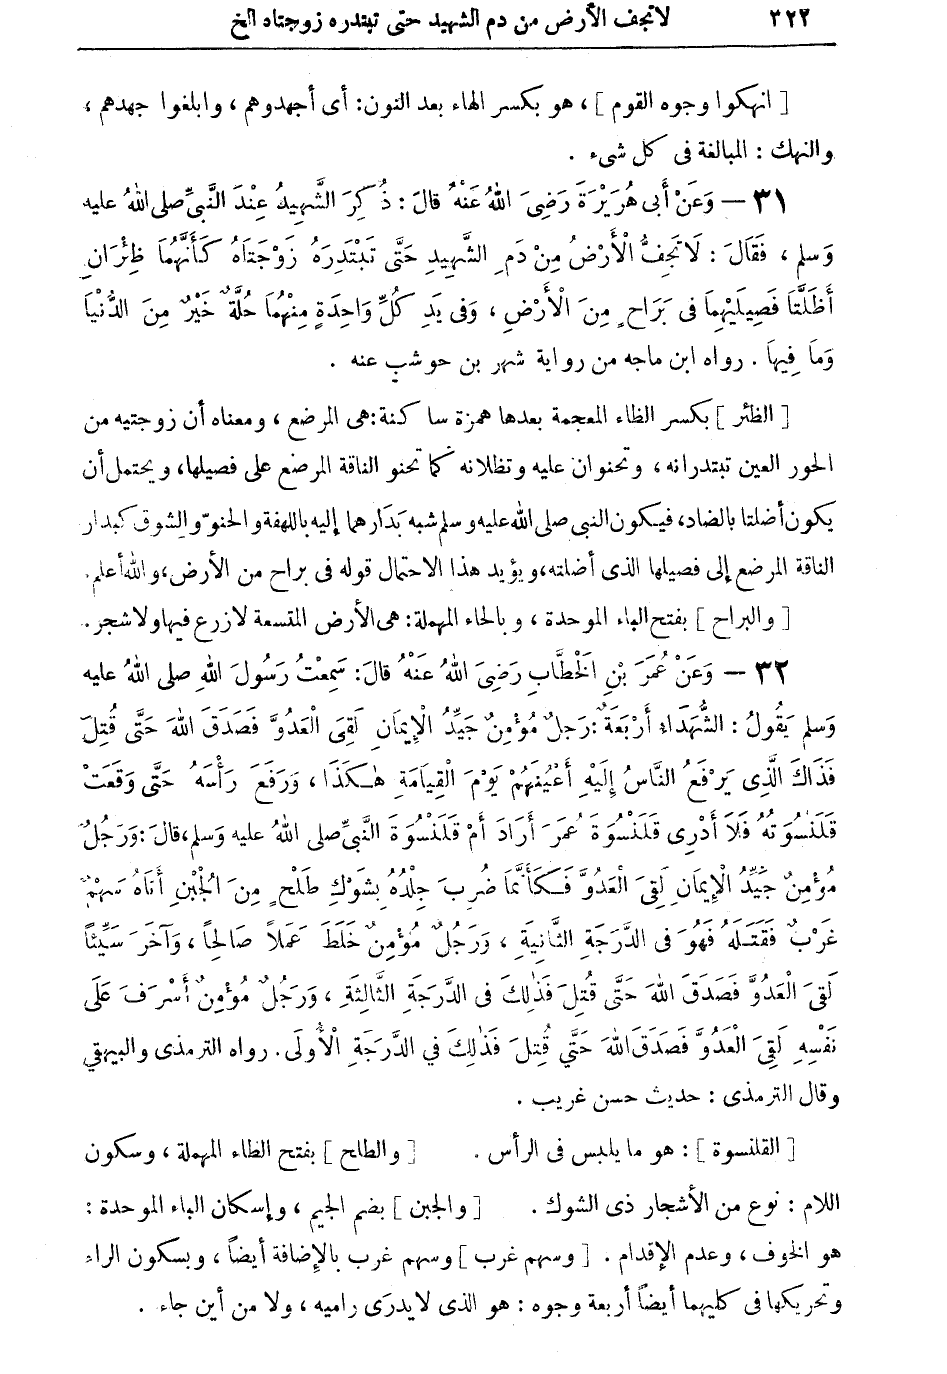 ٣٢٢ لا تجف الأرض من دم الشهيد حتى تبتدره زوجتاه الخ
[ انهكوا وجوه القوم ] ، هو بكسر الهاء بعد النون: أى أجهدوهم ، وابلغوا جهدهم ،
والنهك : المبالغة فى كل شىء .
٣١ — وَعَنْ أَبِى هُرَيْرَةَ رَضِىَ اللهُ عَنْهُ قَالَ : ذُكِرَ الشَّهِيدُ عِنْدَ النَّبِىِّ صلى اللهُ عليه
وَسلم ، فَقَالَ : لَا تَجِفُّ الْأَرْضُ مِنْ دَمِ الشَّهِيدِ حَتَّى تَبْتَدِرَهُ زَوْجَتَاهُ كَأَنَّهُمَا ظِئْرَانِ
أَظَلَّتَا فَصِيلَيْهِمَا فى بَرَاحٍ مِنَ الْأَرْضِ ، وَفى يَدِ كُلِّ وَاحِدَةٍ مِنْهُمَا حُلَّةٌ خَيْرٌ مِنَ الدُّنْيَا
وَمَا فِيهَا . رواه ابن ماجه من رواية شهر بن حوشب عنه .
[ الظئر ] بكسر الظاء المعجمة بعدها همزة ساكنة:هى المرضع ، ومعناه أن زوجتيه من
الحور العين تبتدرانه ، وتحنوان عليه وتظلانه كما تحنو الناقة المرضع على فصيلها، ويحتمل أن
يكون أضلتا بالضاد، فيكون النبى صلى الله عليه وسلم شبه بَدَارهما إليه باللهفة والحنوّ والشوق كبدار
الناقة المرضع إلى فصيلها الذى أضلته،ويؤيد هذا الاحتمال قوله فى براح من الأرض،والله أعلم.
[ والبراح ] بفتح الباء الموحدة ، وبالحاء المهملة: هى الأرض المتسعة لازرع فيها ولا شجر.
٣٢ — وَعَنْ عُمَرَ بْنِ الْخَطَّابِ رَضِىَ اللهُ عَنْهُ قَالَ: سَمِعْتُ رَسُولَ اللهِ صلى اللهُ عليه
وَسلم يَقُولُ : الشُّهَدَاءُ أَرْبَعَةٌ:رَجلٌ مُؤْمِنٌ جَيِّدُ الْإِيمَانِ لَقِىَ الْعَدُوَّ فَصَدَقَ اللهَ حَتَّى قُتِلَ
فَذَاكَ الَّذِى يَرْفَعُ النَّاسُ إِلَيْهِ أَعْيُنَهُمْ يَوْمَ الْقِيَامَةِ هٰكَذَا ، وَرَفَعَ رَأْسَهُ حَتَّى وَقَعَتْ
قَلَنْسُوَتُهُ فَلَا أَدْرِى قَلَنْسُوَةَ عُمَرَ أَرَادَ أَمْ قَلَنْسُوَةَ النَّبِىِّ صلى اللهُ عليه وَسلم،قَالَ :وَرَجُلٌ
مُؤْمِنٌ جَيِّدُ الْإِيمَانِ لَقِىَ الْعَدُوَّ فَكَأَنَّمَا ضُرِبَ جِلْدُهُ بِشَوْكِ طَلْحٍ مِنَ الْجُبْنِ أَتَاهُ سَهْمٌ
غَرْبٌ فَقَتَلَهُ فَهُوَ فى الدَّرَجَةِ الثَّانِيَةِ ، وَرَجُلٌ مُؤْمِنٌ خَلَطَ عَمَلاً صَالِحاً ، وَآخَرَ سَيِّئاً
لَقِىَ الْعَدُوَّ فَصَدَقَ اللهَ حَتَّى قُتِلَ فَذٰلِكَ فى الدَّرَجَةِ الثَّالِثَةِ ، وَرَجُلٌ مُؤْمِنٌ أَسْرَفَ عَلَى
نَفْسِهِ لَقِىَ الْعَدُوَّ فَصَدَقَ اللهَ حَتَّي قُتِلَ فَذٰلِكَ فِي الدَّرَجَةِ الْأُولَى. رواه الترمذى والبيهقي
وقال الترمذى : حديث حسن غريب .
[ القلنسوة ] : هو ما يلبس فى الرأس . [ والطلح ] بفتح الطاء المهملة ، وسكون
اللام : نوع من الأشجار ذى الشوك . [ والجبن ] بضم الجيم ، وإسكان الباء الموحدة :
هو الخوف ، وعدم الإقدام . [ وسهم غرب ] وسهم غرب بالإضافة أيضاً ، وبسكون الراء
وتحريكها فى كليهما أيضاً أربعة وجوه : هو الذى لا يدرَى راميه ، ولا من أين جاء .